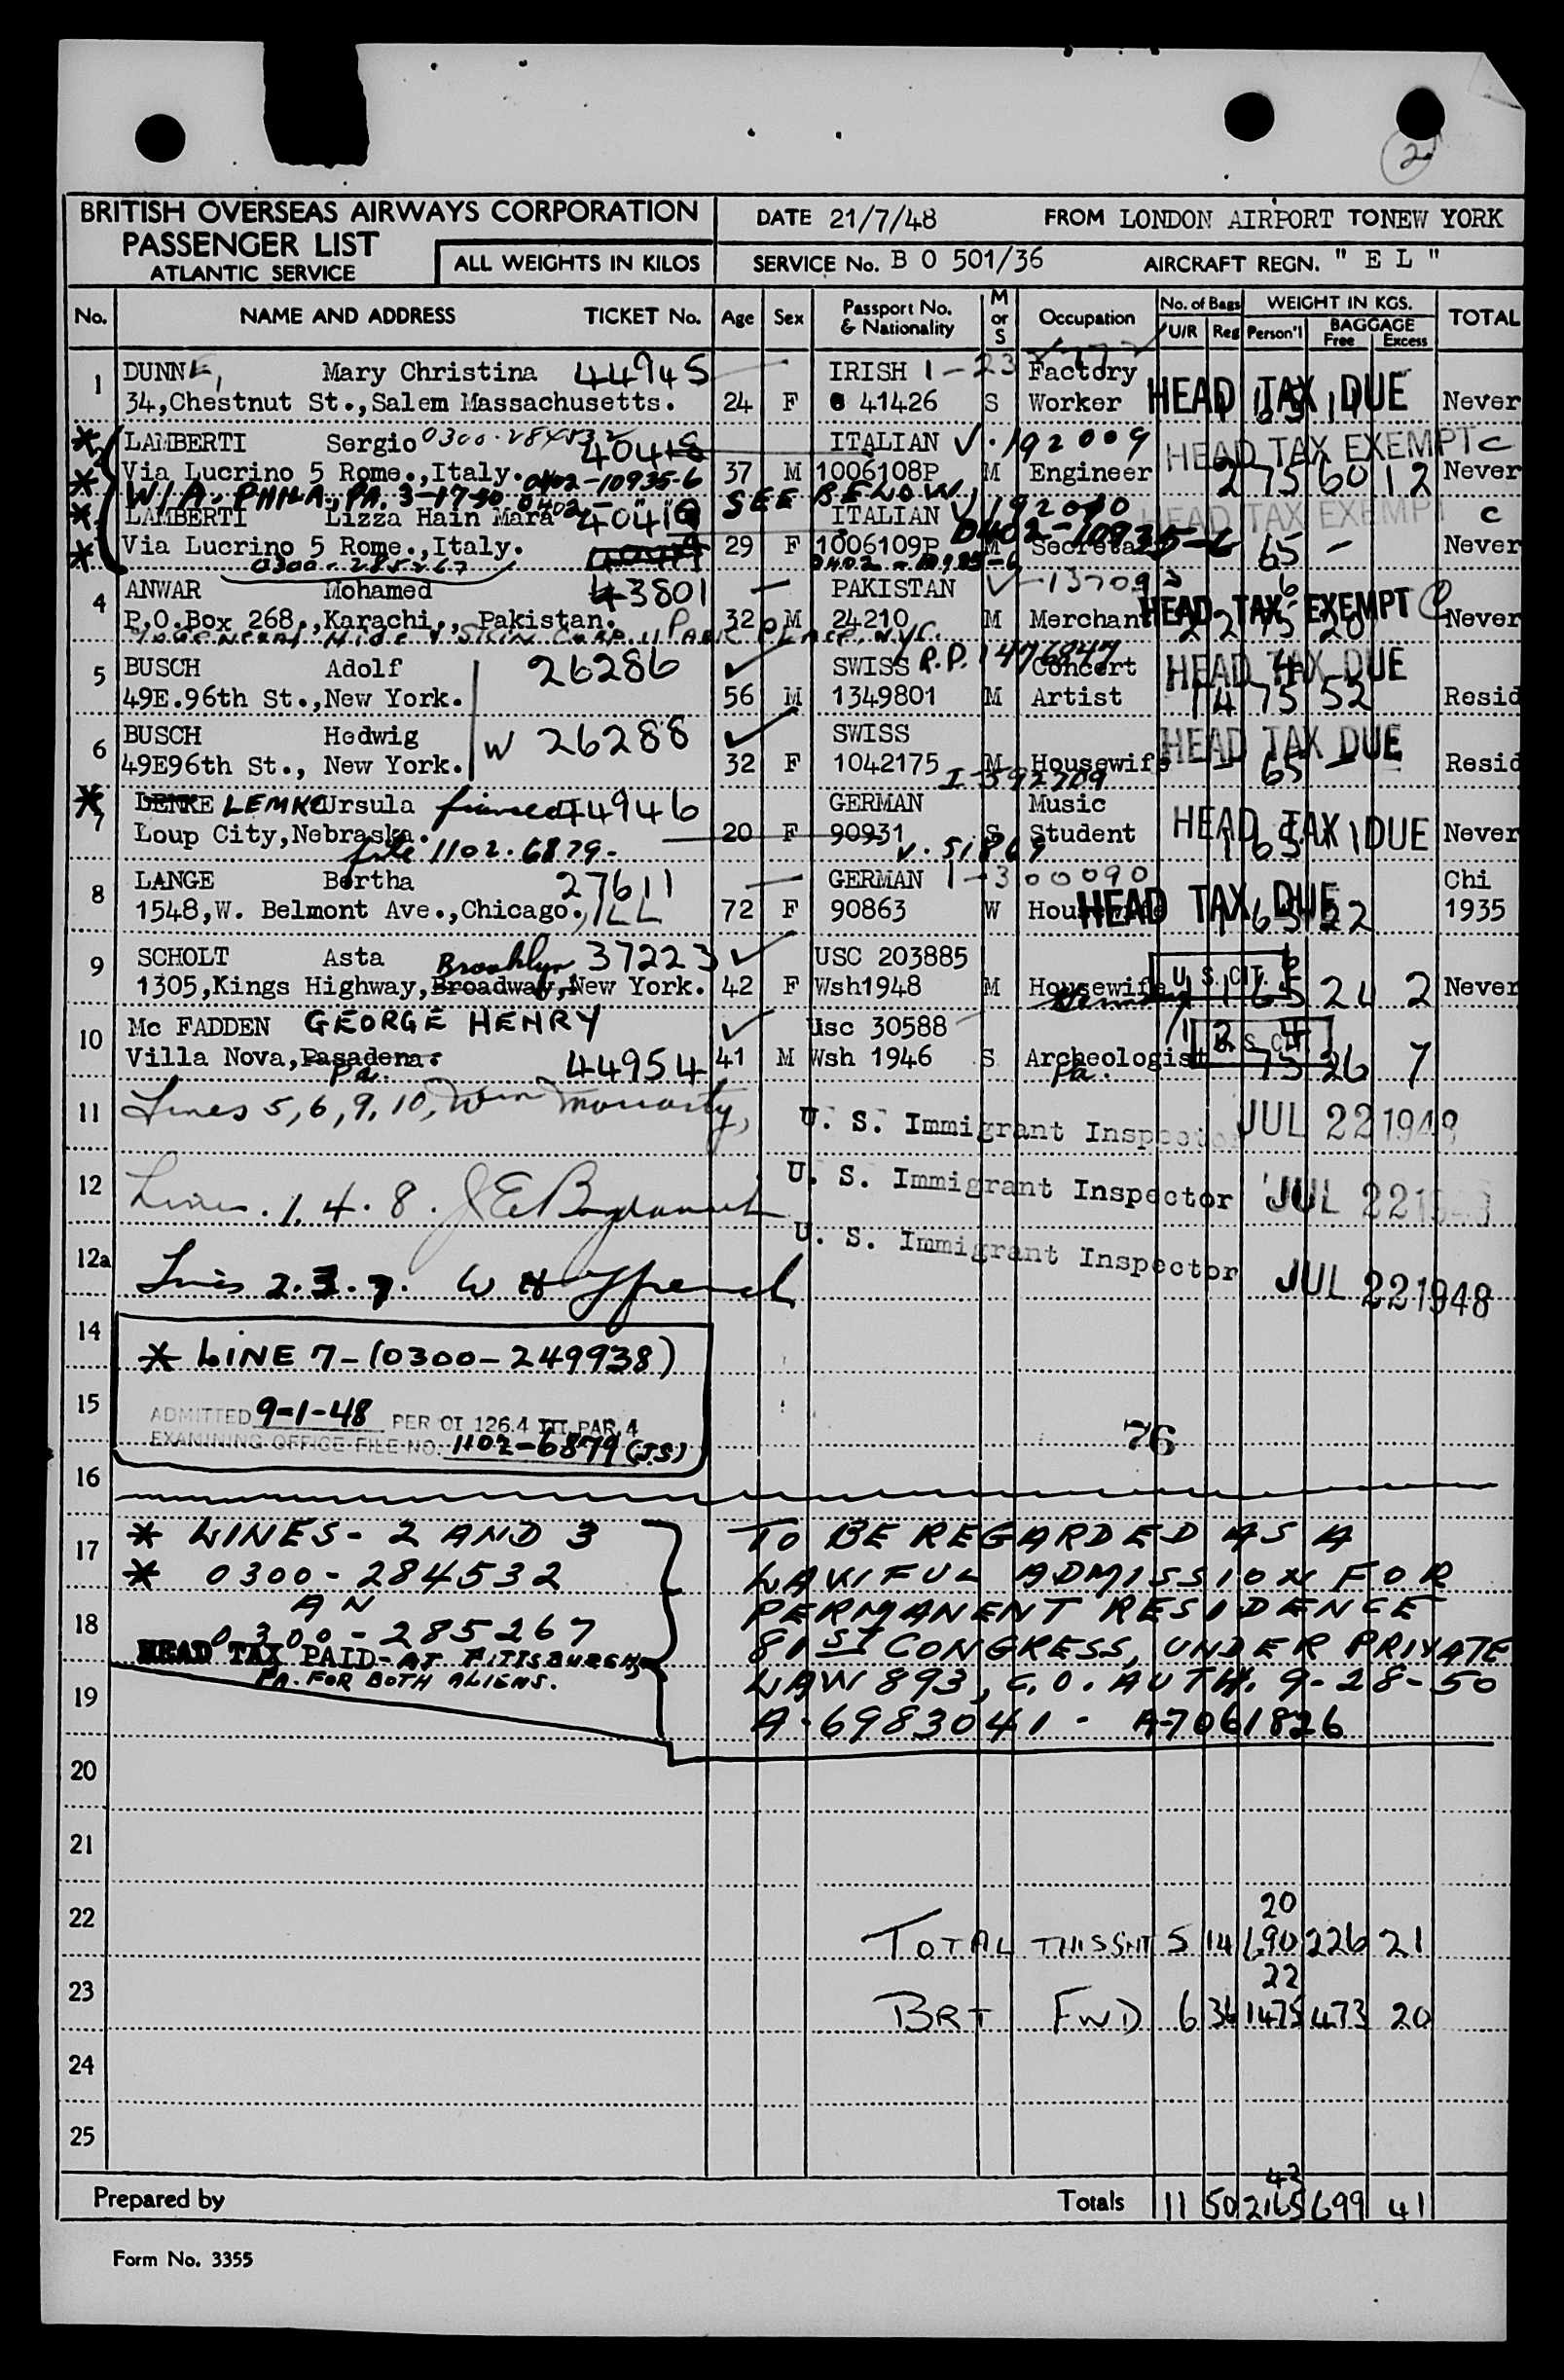 2
BRITISH OVERSEAS AIRWAYS CORPORATION
PASSENGER LIST
ATLANTIC SERVICE
ALL WEIGHTS IN KILOS
DATE 21/7/48 FROM LONDON AIRPORT TO NEW YORK
SERVICE No. B O 501/36 AIRCRAFT REGN. " E L "
No. NAME AND ADDRESS TICKET No. Age Sex Passport No. & Nationality M or S Occupation No. of Bags U/R Reg WEIGHT IN KGS. Person'l BAGGAGE Free Excess TOTAL
1 DUNNE, Mary Christina 44945 IRISH 1-23 Factory HEAD TAX DUE
34,Chestnut St.,Salem Massachusetts. 24 F 41426 S Worker Never
* LAMBERTI Sergio 0300-284532 ITALIAN V.192009 HEAD TAX EXEMPT C
* Via Lucrino 5 Rome.,Italy. 0402-10935-6 37 M 1006108P M Engineer 2 75 60 12 Never
W/A. PHILA., PA. 3-17-50 0402- SEE BELOW
* LAMBERTI Lizza Hain Mara ITALIAN V192010 HEAD TAX EXEMPT C
0402-10935-6
* Via Lucrino 5 Rome.,Italy. 29 F 1006109P M 65 - Never
0300-285267 0402-10935-6
4 ANWAR Mohamed 43801 PAKISTAN HEAD TAX EXEMPT
P.O.Box 268.,Karachi., Pakistan. 32 M 24210 M Merchant 2 2 75 20 Never
5 BUSCH Adolf 26286 SWISS P.P. 1476847 Concert HEAD TAX DUE
49E.96th St.,New York. 56 M 1349801 M Artist 1 4 75 52 Resid
6 BUSCH Hedwig W 26288 SWISS HEAD TAX DUE
49E96th St., New York. 32 F 1042175 M Housewife - 65 - Resid
I-592709
* 7 LEMKE Ursula 44946 GERMAN Music HEAD TAX DUE
Loup City,Nebraska. 20 F 90931 S Student Never
file 1102.6879-
8 LANGE Bertha 27611 GERMAN 1-300090 HEAD TAX DUE Chi
1548,W. Belmont Ave.,Chicago., ILL 72 F 90863 W 1 65 22 1935
9 SCHOLT Asta Brooklyn 37223 USC 203885 U.S. CIT.
1305,Kings Highway,Broadway,New York. 42 F Wsh1948 M Housewife 1 65 24 2 Never
10 Mc FADDEN GEORGE HENRY usc 30588 U.S. CIT.
Villa Nova,Pasadena. Pa. 44954 41 M Wsh 1946 S Archeologist 75 26 7
Pa.
11 Lines 5, 6, 9, 10, Wm Moriarty, U. S. Immigrant Inspector JUL 22 1948
12 Lines. 1. 4. 8. U. S. Immigrant Inspector JUL 22 1948
12a Lines 2.3.7. U. S. Immigrant Inspector JUL 22 1948
14 * LINE 7-(0300-249938)
15 ADMITTED 9-1-48 PER OI 126.4 III PAR. 4
EXAMINING OFFICE FILE NO. 1102-6879 (J.S)
76
16
17 * LINES- 2 AND 3 TO BE REGARDED AS A
* 0300-284532 LAWFUL ADMISSION FOR
18 AN PERMANENT RESIDENCE
0300-285267 81ST CONGRESS, UNDER PRIVATE
HEAD TAX PAID-AT PITTSBURGH,
19 PA. FOR BOTH ALIENS. LAW 893, C.O. AUTH. 9-28-50
A-6983041- A-7061826
20
21
22 20
TOTAL THIS SHT 5 14 690 226 21
23 22
BRT FWD 6 36 1475 473 20
24
25
Prepared by Totals 11 50 42 2165 699 41
Form No. 3355